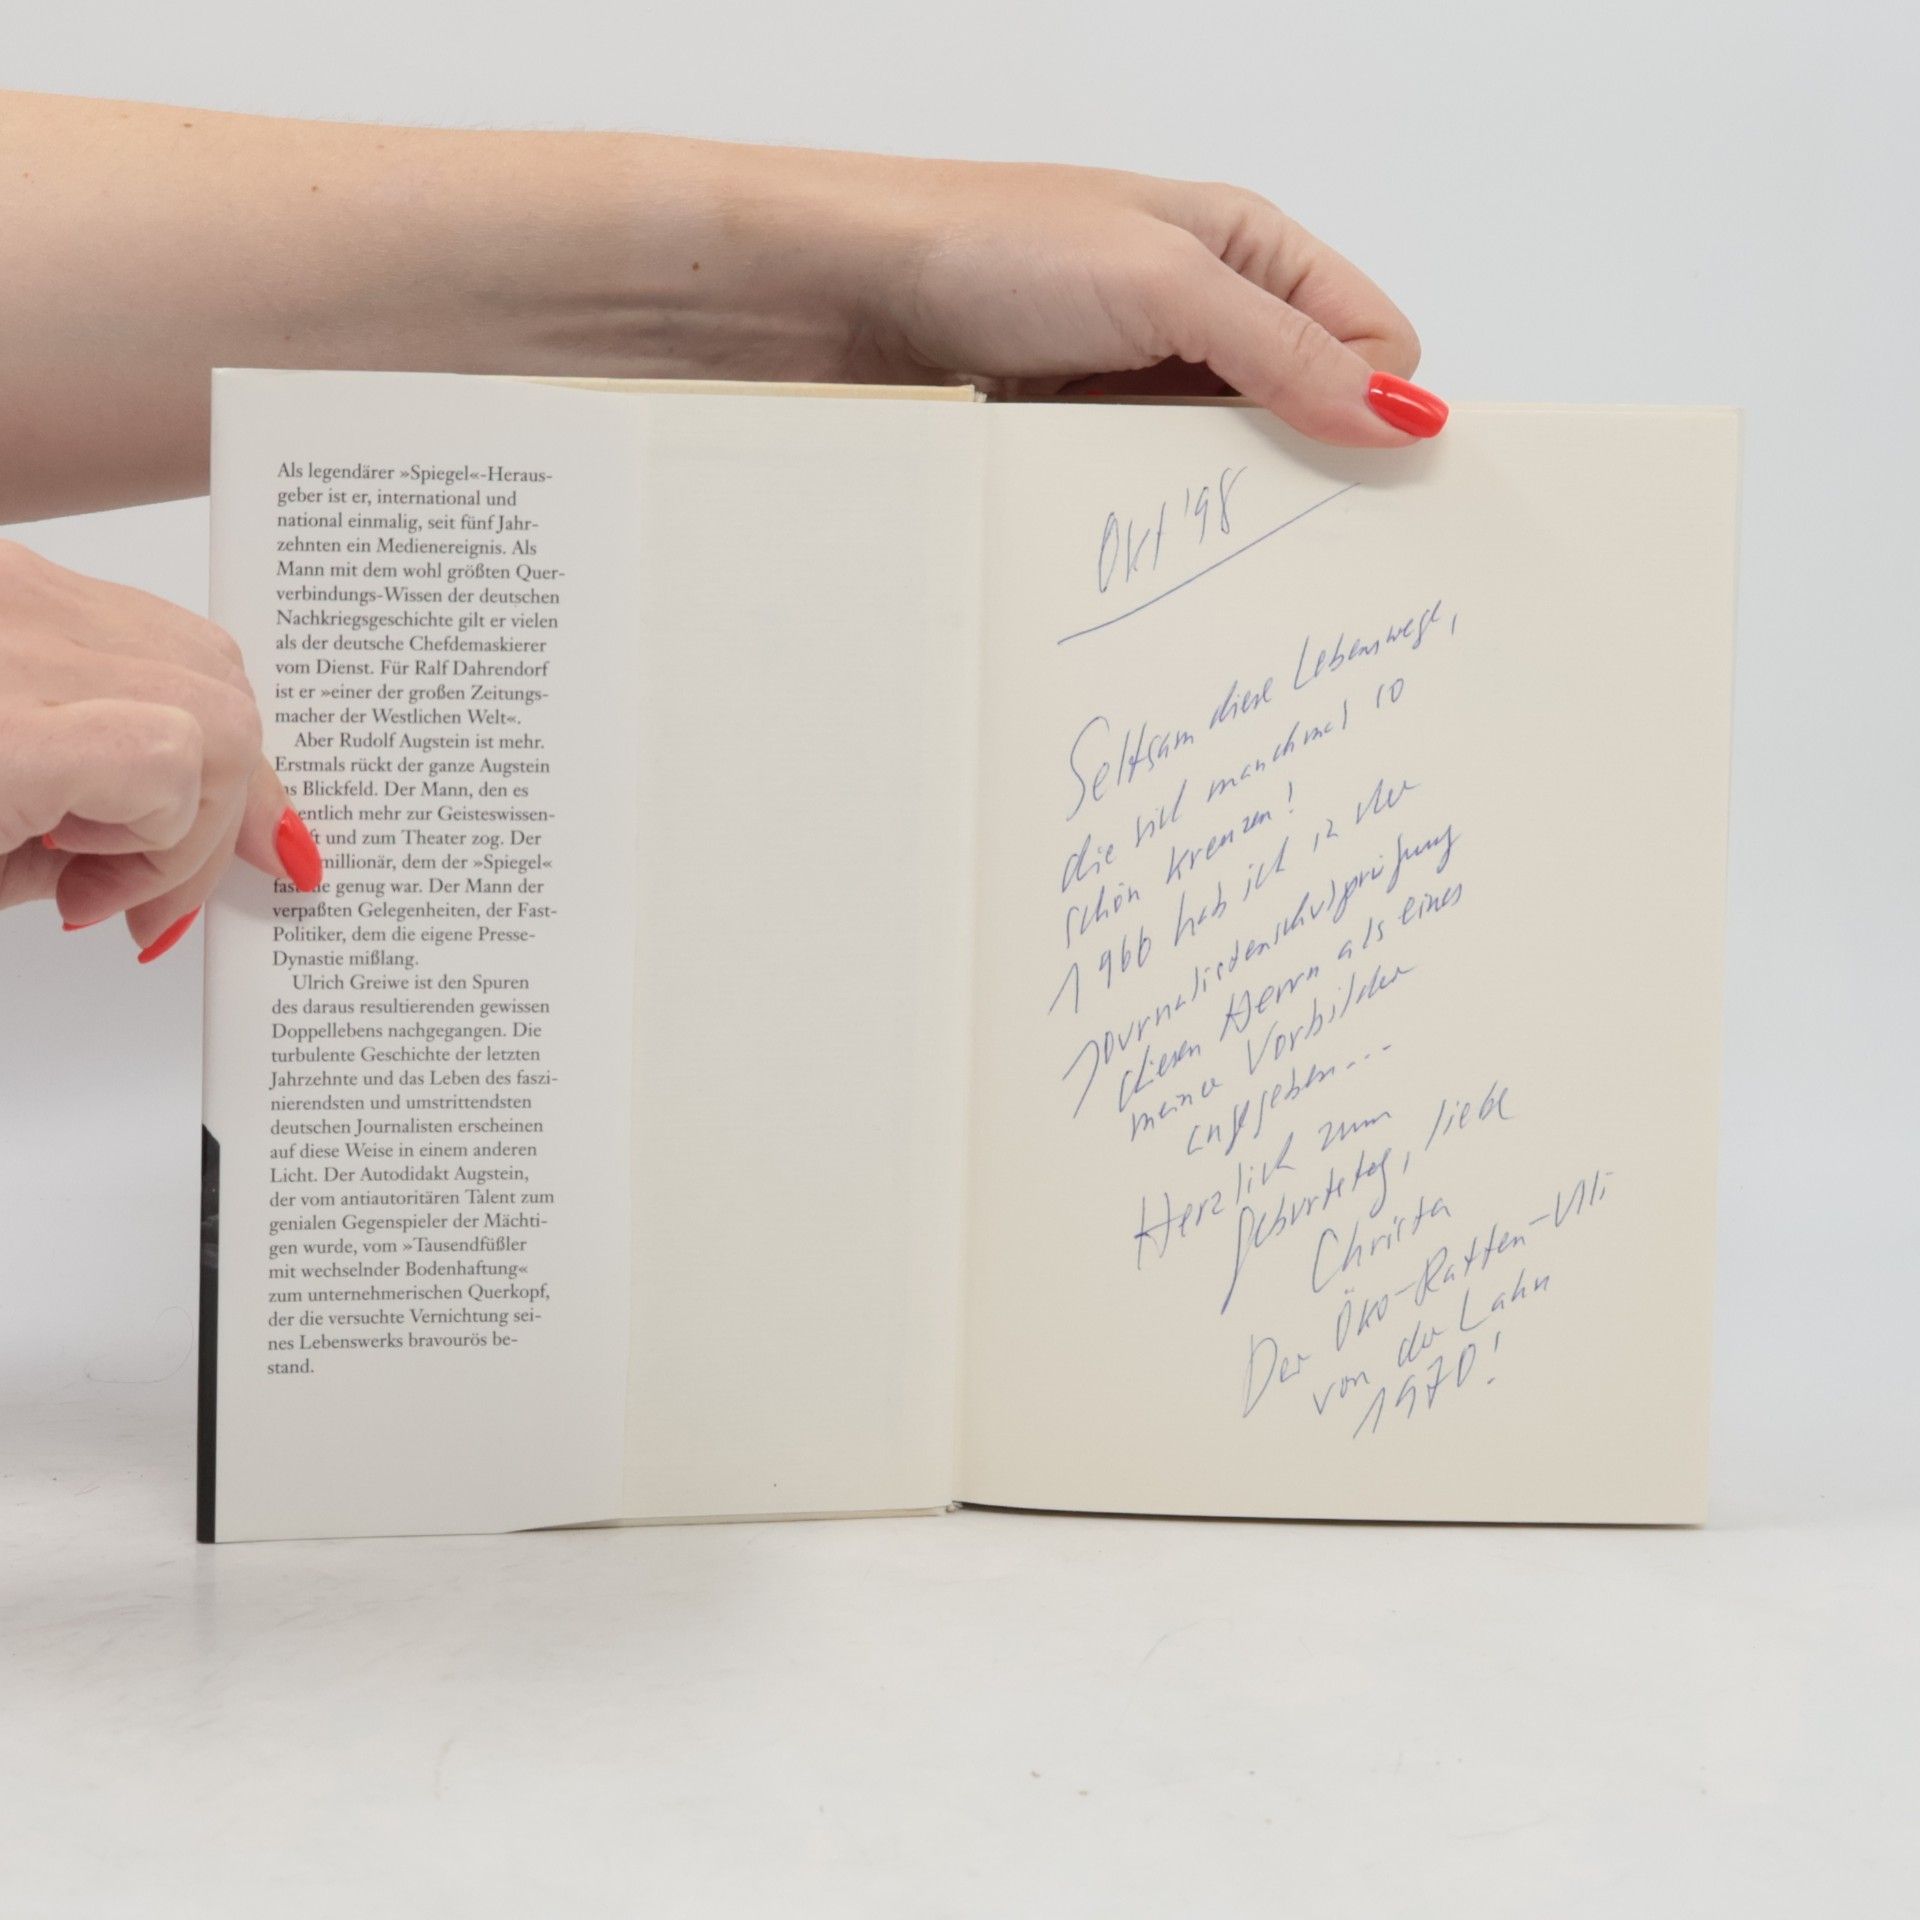 Als legendärer »Spiegel«-Heraus-
geber ist er, international und
national einmalig, seit fünf Jahr-
zehnten ein Medienereignis. Als
Mann mit dem wohl größten Quer-
verbindungs-Wissen der deutschen
Nachkriegsgeschichte gilt er vielen
als der deutsche Chefdemaskierer
vom Dienst. Für Ralf Dahrendorf
ist er »einer der großen Zeitungs-
macher der Westlichen Welt«.
Aber Rudolf Augstein ist mehr.
Erstmals rückt der ganze Augstein
Blickfeld. Der Mann, den es
entlich mehr zur Geisteswissen-
und zum Theater zog. Der
millionär, dem der »Spiegel«
genug war. Der Mann der
verpaßten Gelegenheiten, der Fast-
Politiker, dem die eigene Presse-
Dynastie mißlang.
Ulrich Greiwe ist den Spuren
des daraus resultierenden gewissen
Doppellebens nachgegangen. Die
turbulente Geschichte der letzten
Jahrzehnte und das Leben des faszi-
nierendsten und umstrittendsten
deutschen Journalisten erscheinen
auf diese Weise in einem anderen
Licht. Der Autodidakt Augstein,
der vom antiautoritären Talent zum
genialen Gegenspieler der Mächti-
gen wurde, vom »Tausendfüßler
mit wechselnder Bodenhaftung«
zum unternehmerischen Querkopf,
der die versuchte Vernichtung sei-
nes Lebenswerks bravourös be-
stand.
Okt '98
Seltsam diese Lebenswege,
die sich manchmal so
schön kreuzen!
1966 hab ich in der
Journalistenschulprüfung
diesen Herrn als eines
meiner Vorbilder
angegeben...
Herzlich zum
Geburtstag, liebe
Christa
Der Öko-Ratten-Uli
von der Lahn
1970!